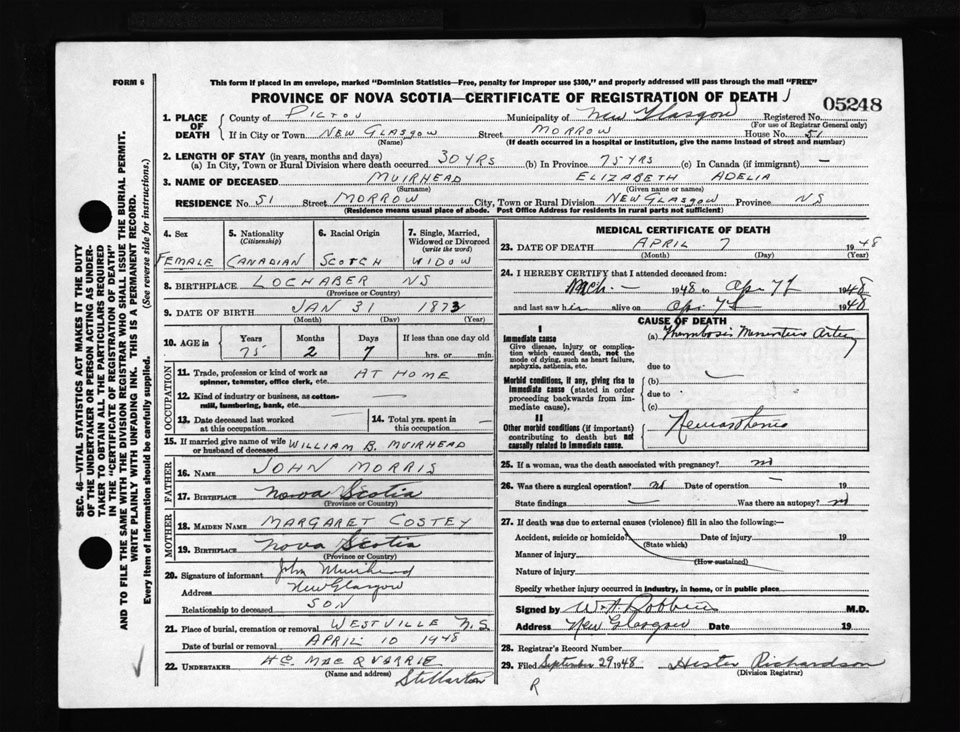 FORM 6
This form if placed in an envelope, marked "Dominion Statistics—Free, penalty for improper use $300," and properly addressed will pass through the mail "FREE"
PROVINCE OF NOVA SCOTIA—CERTIFICATE OF REGISTRATION OF DEATH
05248
1. PLACE OF DEATH County of PICTOU Municipality of New Glasgow Registered No.
(For use of Registrar General only)
If in City or Town NEW GLASGOW Street MORROW House No. 51
(Name) (If death occurred in a hospital or institution, give the name instead of street and number)
2. LENGTH OF STAY (in years, months and days)
(a) In City, Town or Rural Division where death occurred 30 YRS (b) In Province 75 YRS (c) In Canada (if immigrant) —
3. NAME OF DECEASED MUIRHEAD ELIZABETH ADELIA
(Surname) (Given name or names)
RESIDENCE No. 51 Street MORROW City, Town or Rural Division NEW GLASGOW Province NS
(Residence means usual place of abode. Post Office Address for residents in rural parts not sufficient)
4. Sex 5. Nationality (Citizenship) 6. Racial Origin 7. Single, Married, Widowed or Divorced (write the word)
FEMALE CANADIAN SCOTCH WIDOW
8. BIRTHPLACE LOCHABER NS
(Province or Country)
9. DATE OF BIRTH JAN 31 1873
(Month) (Day) (Year)
10. AGE in Years Months Days If less than one day old
75 2 7 hrs. or min.
OCCUPATION
11. Trade, profession or kind of work as spinner, teamster, office clerk, etc. AT HOME
12. Kind of industry or business, as cotton-mill, lumbering, bank, etc. —
13. Date deceased last worked at this occupation — 14. Total yrs. spent in this occupation —
15. If married give name of wife or husband of deceased WILLIAM B. MUIRHEAD
FATHER
16. NAME JOHN MORRIS
17. BIRTHPLACE Nova Scotia
MOTHER
18. MAIDEN NAME MARGARET COSTEY
19. BIRTHPLACE Nova Scotia
(Province or Country)
20. Signature of informant John Muirhead
Address New Glasgow
Relationship to deceased SON
21. Place of burial, cremation or removal WESTVILLE N.S.
Date of burial or removal APRIL 10 1948
22. UNDERTAKER H.C. MACQUARRIE
(Name and address) Stellarton
MEDICAL CERTIFICATE OF DEATH
23. DATE OF DEATH APRIL 7 1948
(Month) (Day) (Year)
24. I HEREBY CERTIFY that I attended deceased from:
Mch. — 1948 to Apr. 7th 1948
and last saw her alive on Apr. 7th 1948
CAUSE OF DEATH
I
Immediate cause
Give disease, injury or complication which caused death, not the mode of dying, such as heart failure, asphyxia, asthenia, etc.
(a) Thrombosis Artery
due to
Morbid conditions, if any, giving rise to immediate cause (stated in order proceeding backwards from immediate cause).
(b)
due to
(c)
II
Other morbid conditions (if important) contributing to death but not causally related to immediate cause.
25. If a woman, was the death associated with pregnancy? no
26. Was there a surgical operation? no Date of operation — 19
State findings — Was there an autopsy? no
27. If death was due to external causes (violence) fill in also the following:—
Accident, suicide or homicide? Date of injury 19
(State which)
Manner of injury
(How sustained)
Nature of injury
Specify whether injury occurred in industry, in home, or in public place
Signed by W.A. Robbins M.D.
Address New Glasgow Date 19
28. Registrar's Record Number
29. Filed September 29 1948 Hester Richardson
(Division Registrar)
R
SEC. 46—VITAL STATISTICS ACT MAKES IT THE DUTY
OF THE UNDERTAKER OR PERSON ACTING AS UNDER-
TAKER TO OBTAIN ALL THE PARTICULARS REQUIRED
IN THE "CERTIFICATE OF REGISTRATION OF DEATH"
AND TO FILE THE SAME WITH THE DIVISION REGISTRAR WHO SHALL ISSUE THE BURIAL PERMIT.
WRITE PLAINLY WITH UNFADING INK. THIS IS A PERMANENT RECORD.
Every item of information should be carefully supplied. (See reverse side for instructions.)